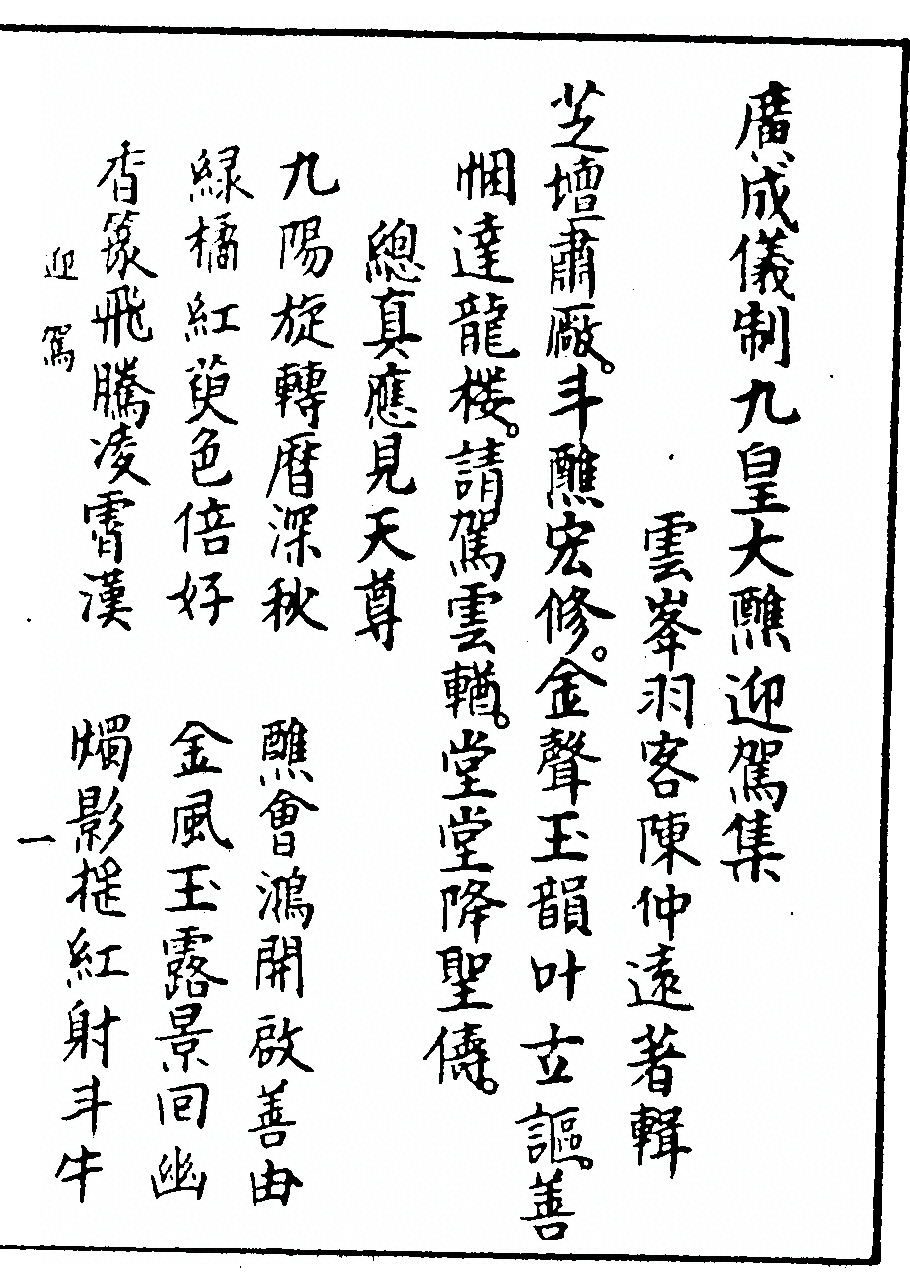 廣成儀制九皇大醮迎駕集
雲峯羽客陳仲遠著輯
芝壇肅厰。斗醮宏修。金聲玉韻叶立謳。善
悃達龍楼。請駕雲輶。堂堂降聖儔。
總真應見天尊
九陽旋轉曆深秋 醮會鴻開啟善由
緑橘紅萸色倍好 金風玉露景回幽
香篆飛騰凌霄漢 燭影提紅射斗牛
迎駕 一